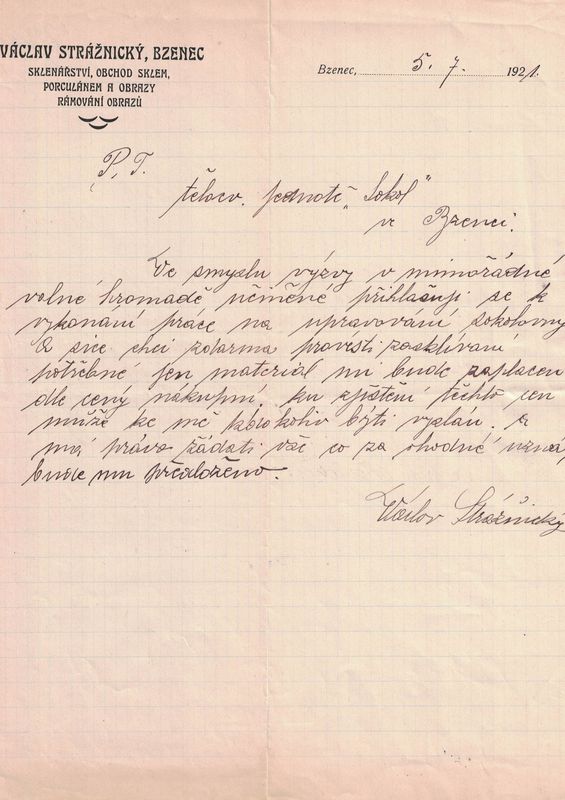 VÁCLAV STRÁŽNICKÝ, BZENEC
SKLENÁŘSTVÍ, OBCHOD SKLEM,
PORCULÁNEM A OBRAZY
RÁMOVÁNÍ OBRAZŮ
Bzenec, 5. 7. 1921.
P. T.
tělocv. jednotě „Sokol"
ve Bzenci.
Ve smyslu výzvy v mimořádné
valné hromadě učiněné přihlašuji se k
vykonání práce na upravování sokolovny
a sice chci zdarma provesti zasklívání
potřebné jen materiál mi bude zaplacen
dle ceny nákupní, ku zjištění těchto cen
může ke mě kdokoliv býti vyslán. a
má právo žádati vše co za vhodné uzná,
bude mu předloženo.
Václav Strážnický